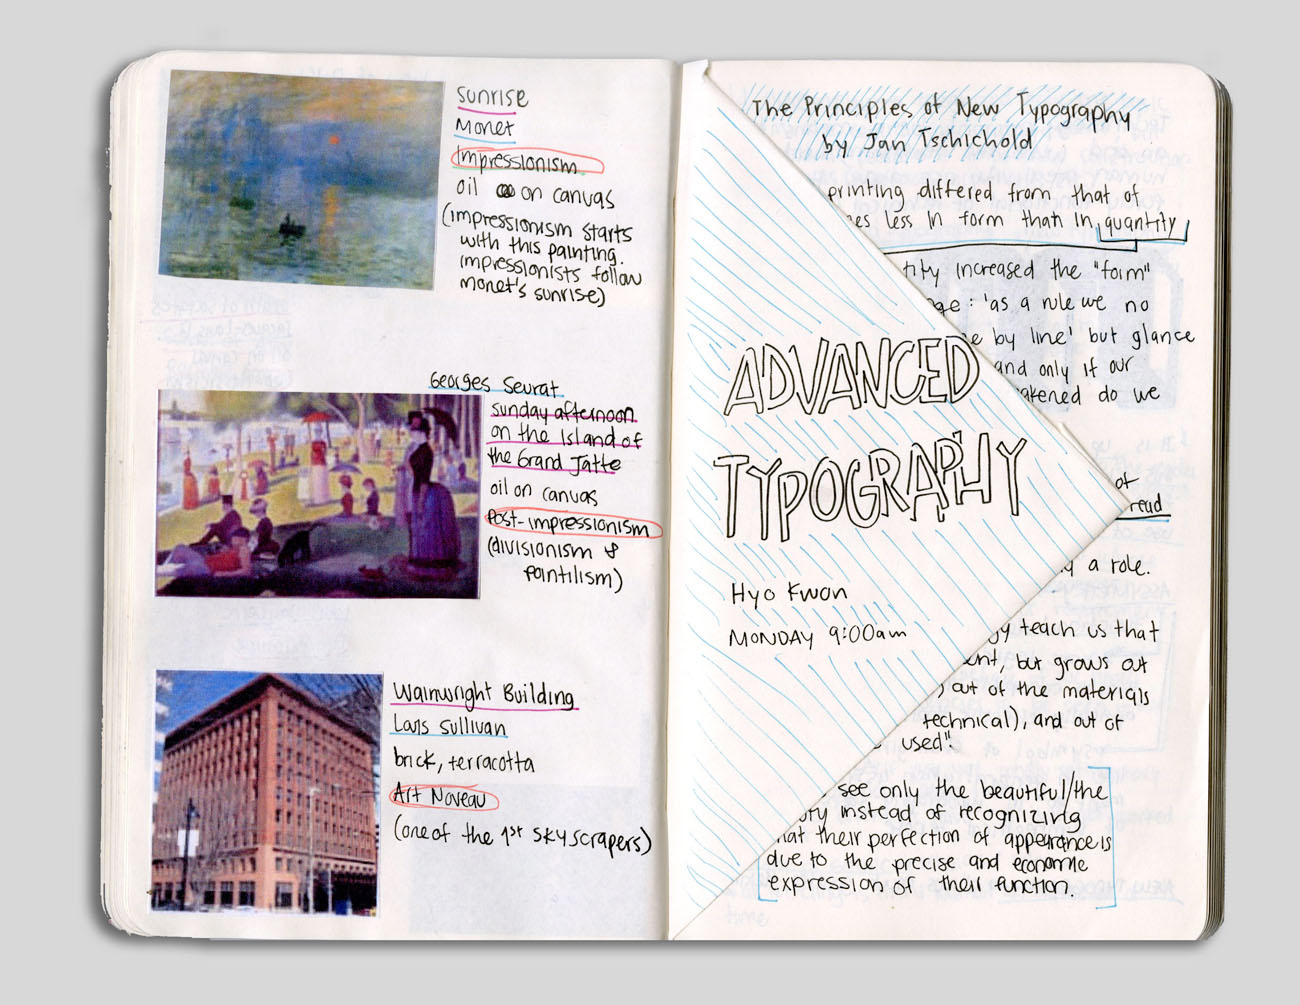 Sunrise
Monet
Impressionism
oil on canvas
(impressionism starts
with this painting.
impressionists follow
monet's sunrise)
Georges Seurat
Sunday afternoon
on the Island of
the Grand Jatte
oil on canvas
Post-impressionism
(divisionism &
pointilism)
Wainwright Building
Louis Sullivan
brick, terracotta
Art Noveau
(one of the 1st skyscrapers)
The Principles of New Typography
by Jan Tschichold
printing differed from that of
es less in form than in quantity
tity increased the "form"
ge: 'as a rule we no
e by line' but glance
and only if our
akened do we
ADVANCED
TYPOGRAPHY
of
read
y a role.
Hyo Kwon
MONDAY 9:00am
gy teach us that
ent, but grows out
, out of the materials
technical), and out of
used".
see only the beautiful/the
ity instead of recognizing
hat their perfection of appearance is
due to the precise and economic
expression of their function.